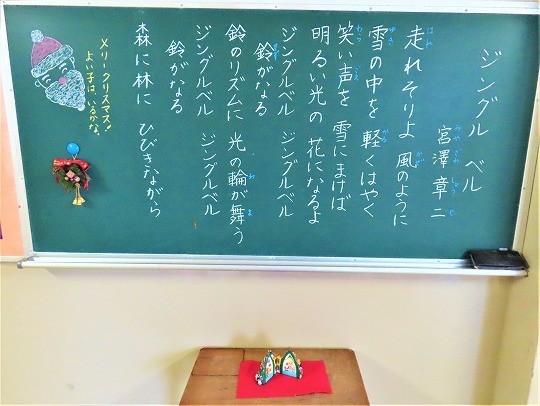 ジングル ベル
宮澤章二
走れそりよ 風のように
雪の中を 軽くはやく
笑い声を 雪にまけば
明るい光の 花になるよ
ジングルベル ジングルベル
鈴がなる
鈴のリズムに 光の輪が舞う
ジングルベル ジングルベル
鈴がなる
森に林に ひびきながら
メリークリスマス!!
よい子は、いるかな。